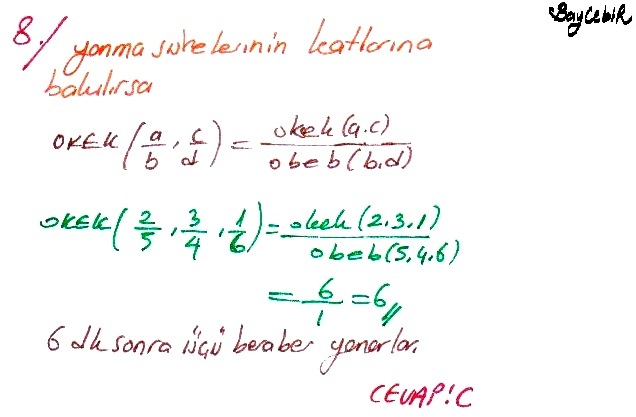 BaycebiR
8./ yanma sürelerinin katlarına
bakılırsa
OKEK(a/b, c/d) = okek(a.c)/obeb(b.d)
OKEK(2/5, 3/4, 1/6) = okek(2.3.1)/obeb(5.4.6)
= 6/1 = 6//
6 dk sonra üçü beraber yanarlar.
CEVAP:C